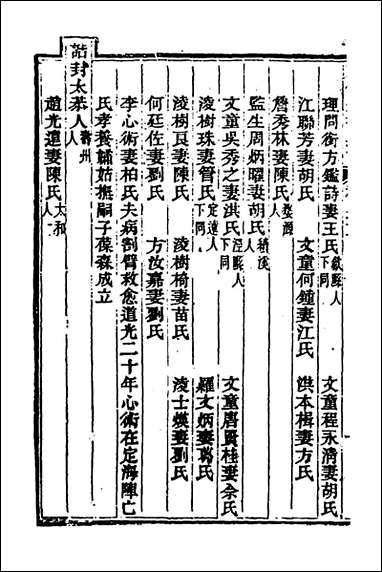 理問銜方鑑詩妻王氏歙縣人下同 文童程永清妻胡氏
江聯芳妻胡氏 文童何鍾妻江氏 洪本楫妻方氏
詹秀林妻陳氏婺源人
監生周炳曜妻胡氏績溪人
文童吳秀之妻洪氏涇縣人下同 文童唐賢桂妻余氏
淩樹珠妻管氏定遠人下同 羅文炳妻葛氏
淩樹良妻陳氏 淩樹椅妻苗氏 淩士煐妻劉氏
何廷佐妻劉氏 方汝嘉妻劉氏
李心術妻柏氏夫病割臂救愈道光二十年心術在定海陣亡
氏孝養孀姑撫嗣子葆森成立
誥封太恭人壽州人
趙光遠妻陳氏太和人